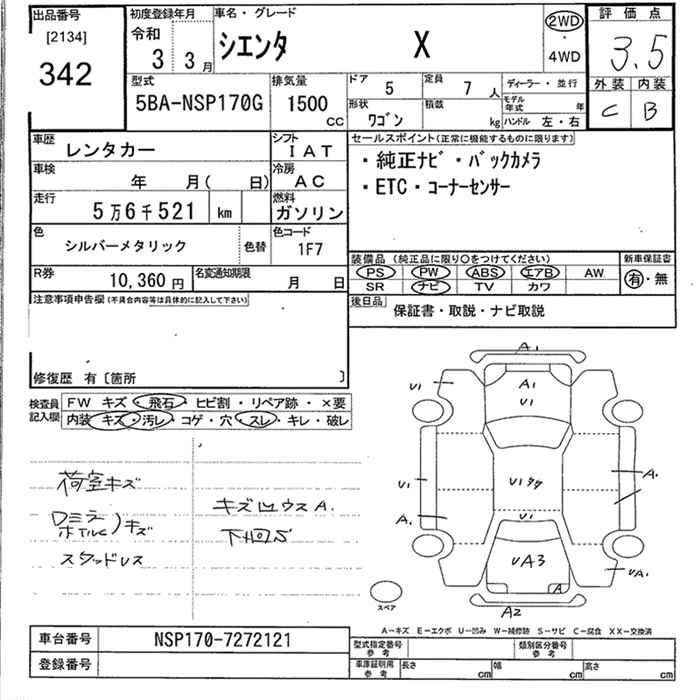 出品番号 初度登録年月 車名・グレード 評価点
[2134] 令和 シエンタ X 2WD 3.5
342 3 3月 ・
4WD 外装 内装
C B
型式 排気量 ドア 5 定員 7人 ディーラー・並行
5BA-NSP170G 1500 cc 形状 ワゴン 積載 kg モデル年式 年
ハンドル 左・右
車歴 レンタカー シフト IAT
車検 年 月( 日) 冷房 AC
走行 5万6千521 km 燃料 ガソリン
色 シルバーメタリック 色替 色コード 1F7
R券 10,360円 名変通知期限 月 日
セールスポイント(正常に機能するものに限ります)
・純正ナビ・バックカメラ
・ETC・コーナーセンサー
装備品 (純正品に限り○をつけてください) 新車保証書
PS PW ABS エアB AW 有・無
SR ナビ TV カワ
後日品 保証書・取説・ナビ取説
注意事項申告欄(不具合内容等は具体的に記入して下さい)
修復歴 有〔箇所 〕
検査員記入欄 FW キズ・飛石・ヒビ割・リペア跡・×要
内装 キズ・汚レ・コゲ・穴・スレ・キレ・破レ
荷室キズ
ドミラー
ホイルC)キズ
スタッドレス
キズ凹ウスA.
下回S
A1
U1 A1
U1
U1 A.
A. U1
UA3 UA1
A
A2
スペア
A-キズ E-エクボ U-凹み W-補修跡 S-サビ C-腐食 XX-交換済
車台番号 NSP170-7272121
登録番号
型式指定番号 参考 類別区分番号 参考
車庫証明用 参考 長さ cm 幅 cm 高さ cm